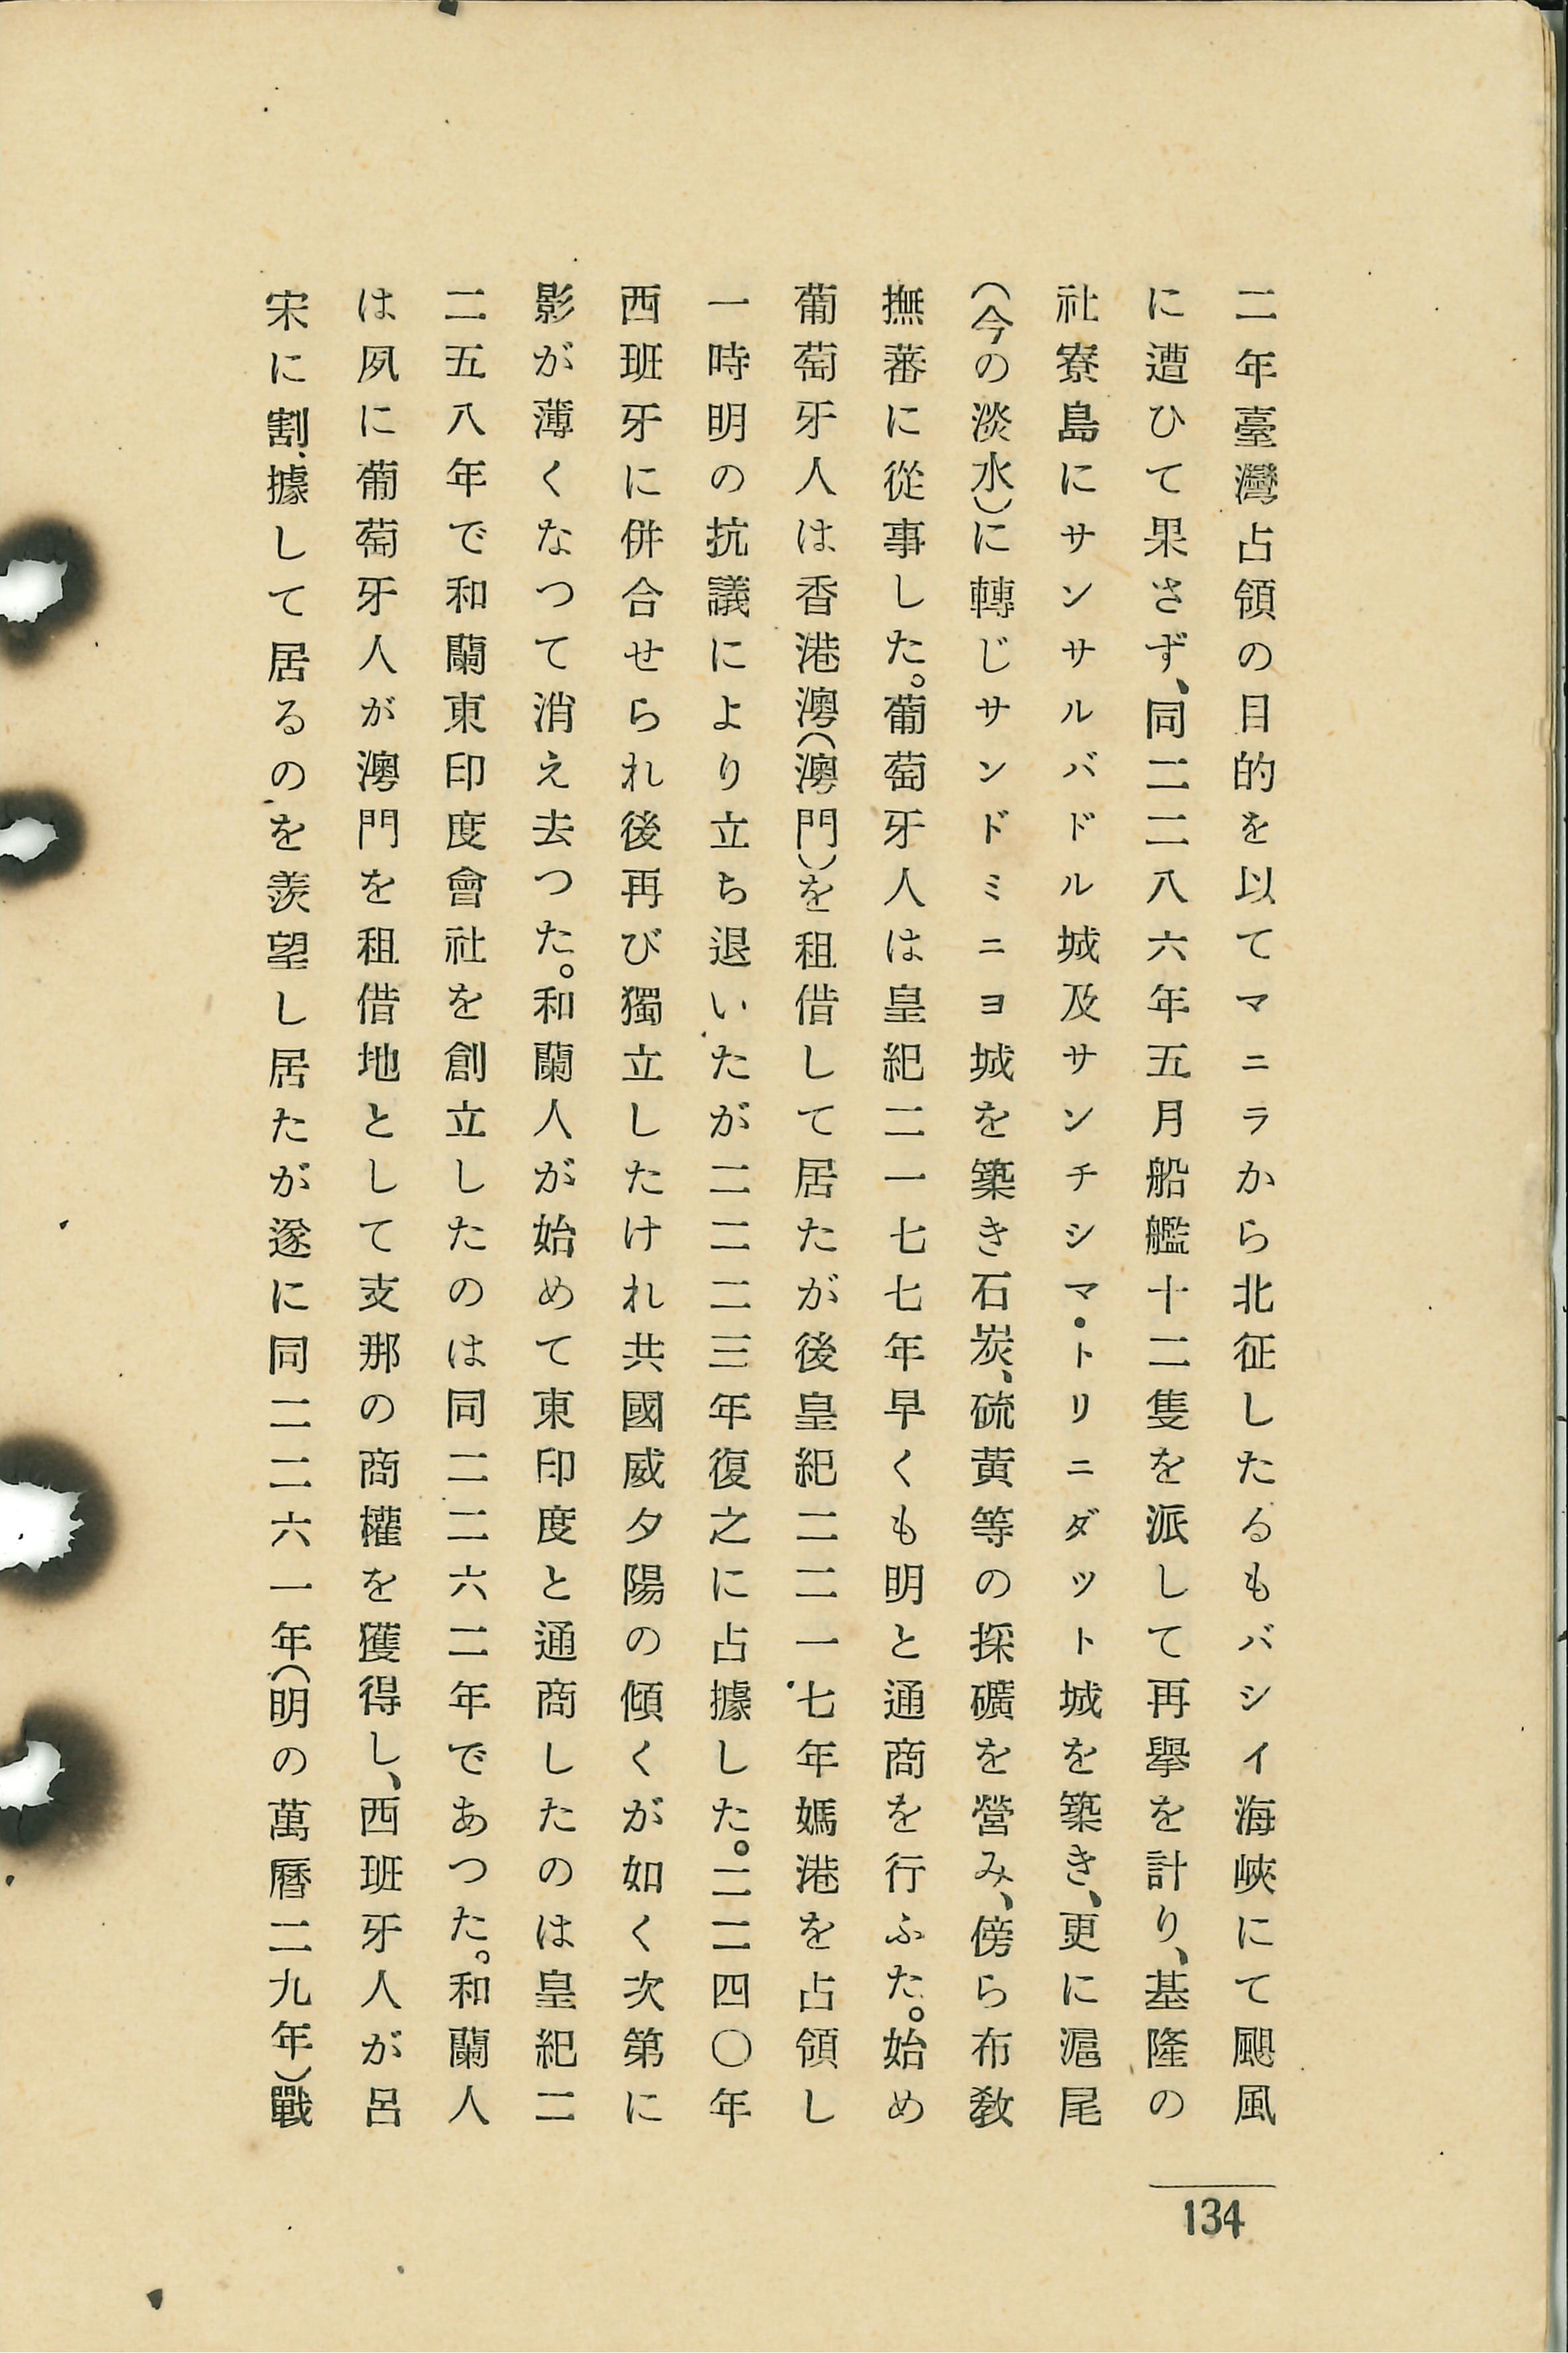 二年臺灣占領の目的を以てマニラから北征したるもバシイ海峽にて颶風
に遭ひて果さず、同二二八六年五月船艦十二隻を派して再擧を計り、基隆の
社寮島にサンサルバドル城及サンチシマ・トリニダット城を築き、更に滬尾
(今の淡水)に轉じサンドミニヨ城を築き石炭、硫黄等の採礦を營み、傍ら布教
撫蕃に從事した。葡萄牙人は皇紀二一七七年早くも明と通商を行ふた。始め
葡萄牙人は香港澳(澳門)を租借して居たが後皇紀二二一七年媽港を占領し
一時明の抗議により立ち退いたが二二二三年復之に占據した。二二四〇年
西班牙に併合せられ後再び獨立したけれ共國威夕陽の傾くが如く次第に
影が薄くなつて消え去つた。和蘭人が始めて東印度と通商したのは皇紀二
二五八年で和蘭東印度會社を創立したのは同二二六二年であつた。和蘭人
は夙に葡萄牙人が澳門を租借地として支那の商權を獲得し、西班牙人が呂
宋に割據して居るのを羨望し居たが遂に同二二六一年(明の萬曆二九年)戰
134